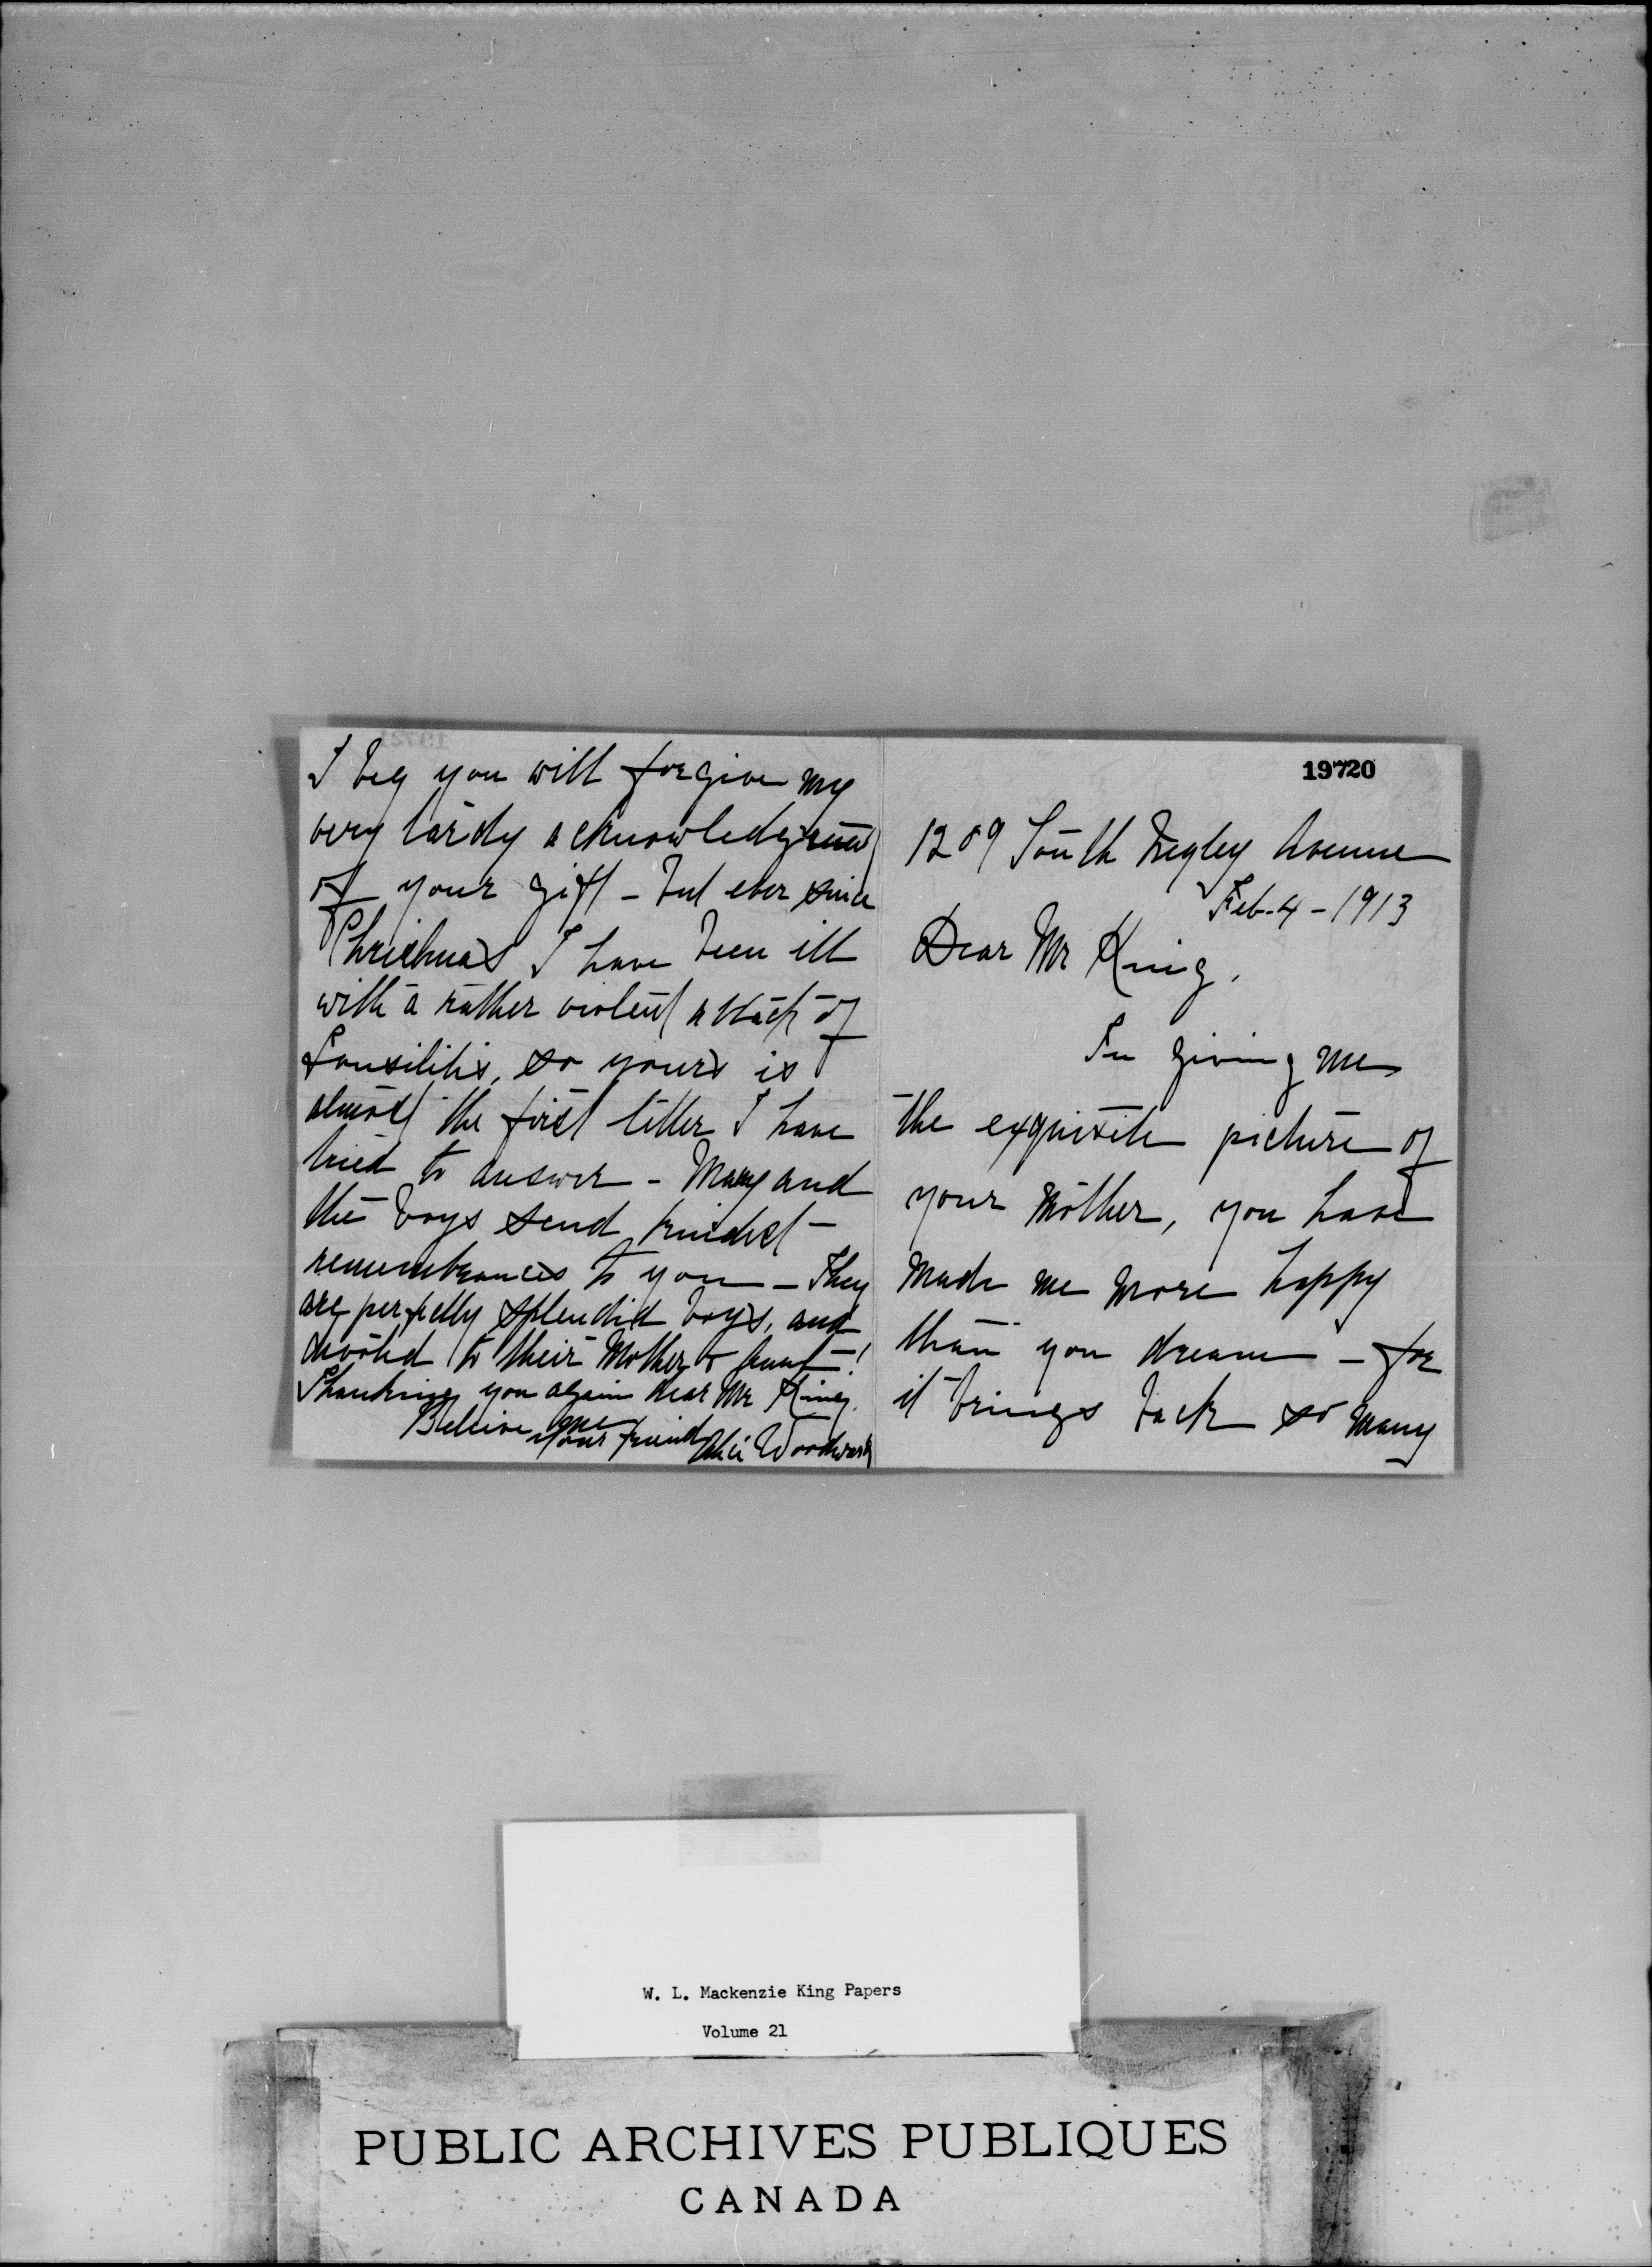 19720
1209 South Negley Avenue
Feb-4-1913
Dear Mr King,
In giving me
the exquisite picture of
your Mother, you have
made me more happy
than you dream - for
it brings back so many
I beg you will forgive my
very tardy acknowledgment
of your gift - but ever since
Christmas I have been ill
with a rather violent attack of
tonsilitis, so yours is
almost the first letter I have
tried to answer - Mary and
the boys send kindest
remembrances to you - They
are perfectly splendid boys, and
devoted to their Mother & Aunt!
Thanking you again dear Mr King.
Believe me
your friend Alice Woodward
W. L. Mackenzie King Papers
Volume 21
PUBLIC ARCHIVES PUBLIQUES
CANADA